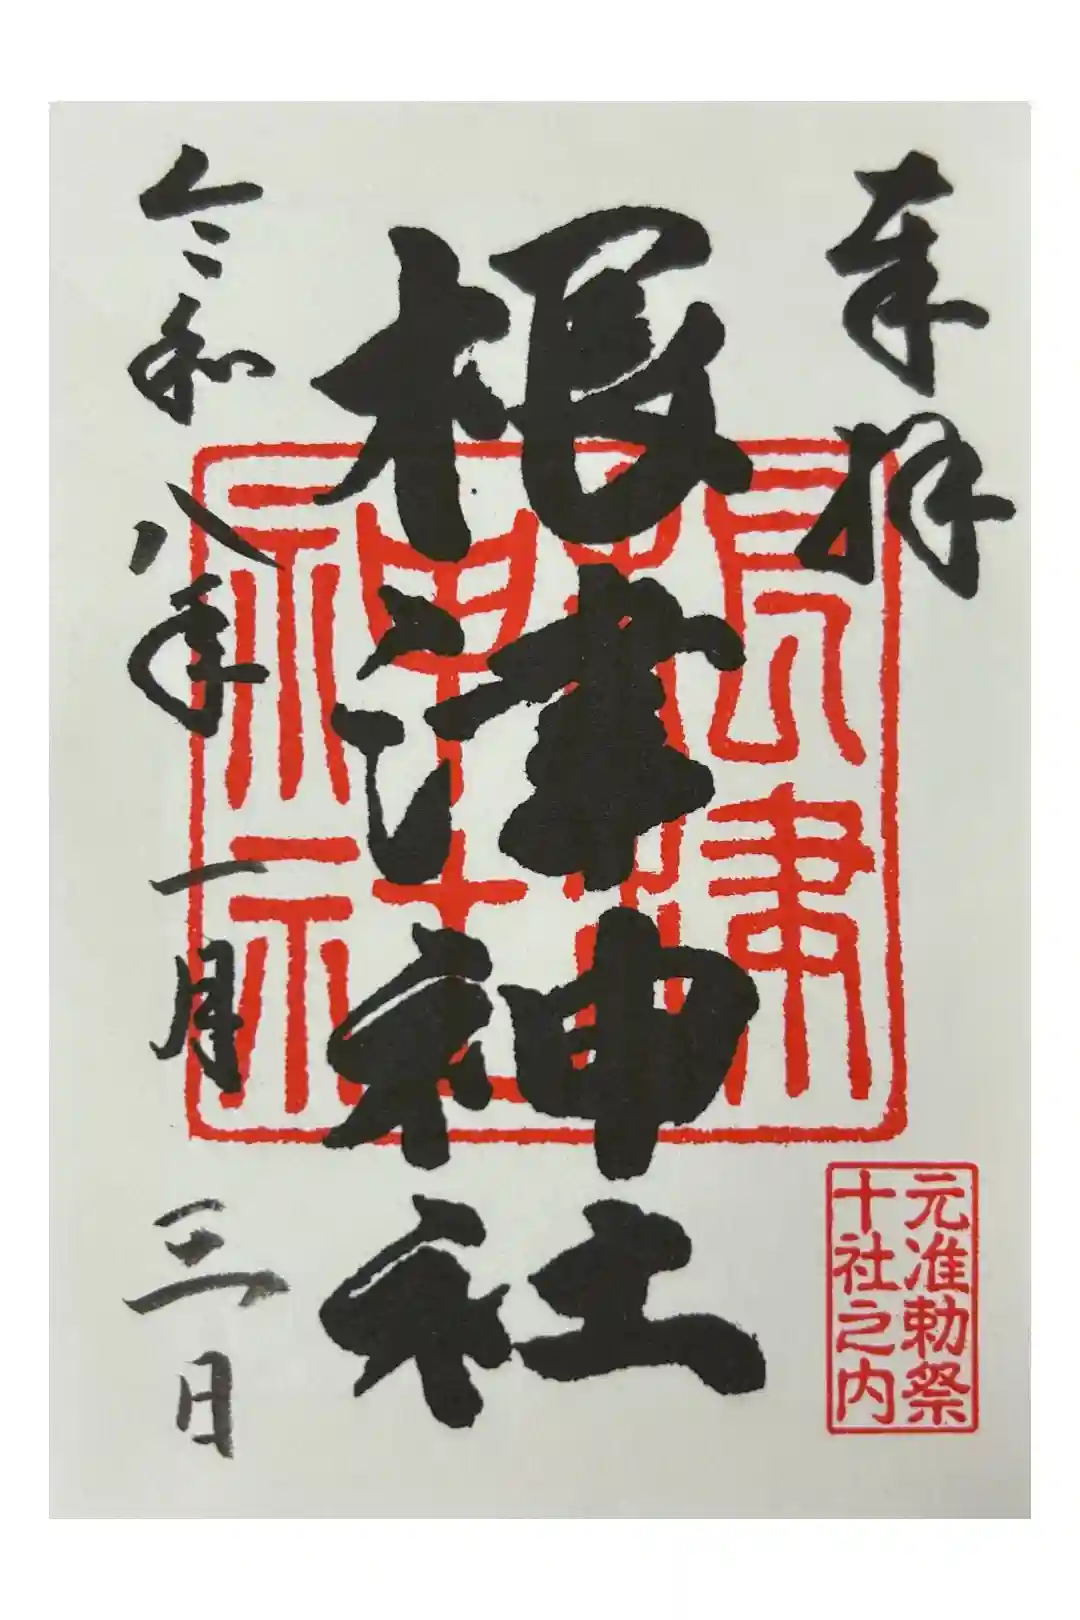 奉拝
根津神社
根津神社
元准勅祭
十社之内
令和八年一月三日